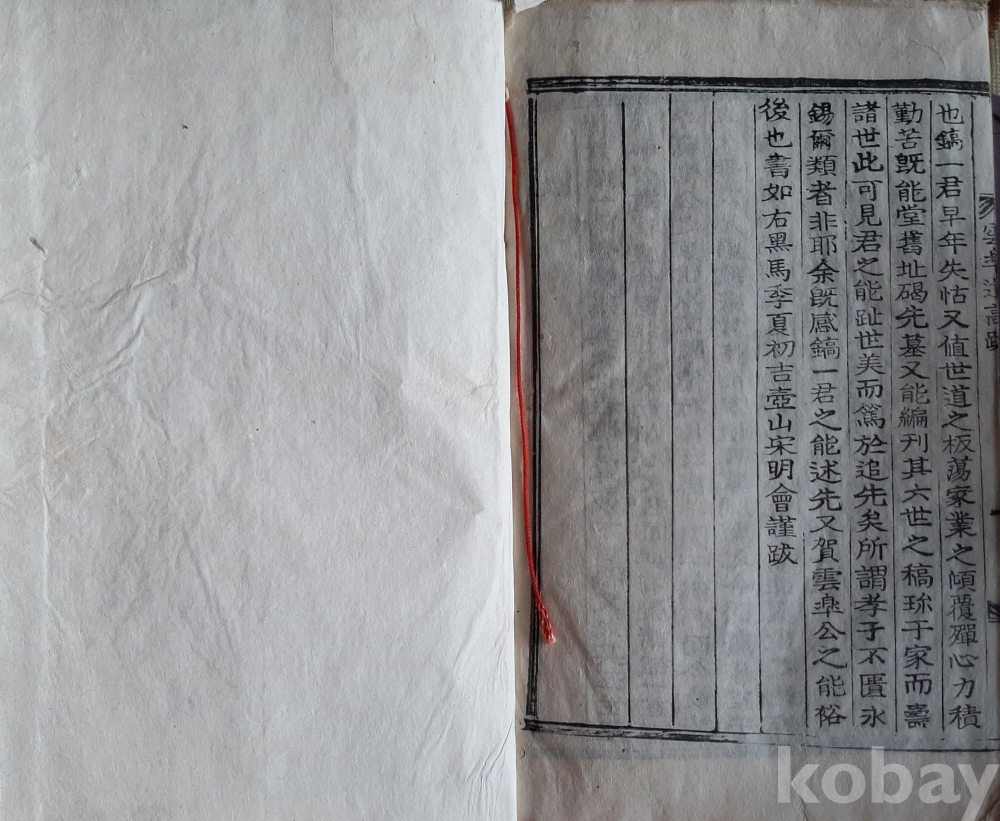 也鎬一君早年失怙又值世道之板蕩家業之傾覆殫心力積
勤苦旣能堂舊址碣先墓又能編刊其六世之稿珎于家而壽
諸世此可見君之能趾世美而篤於追先矣所謂孝子不匱永
錫爾類者非耶余旣感鎬一君之能述先又賀雲臯公之能裕
後也書如右黑馬季夏初吉壺山宋明會謹跋
kobay